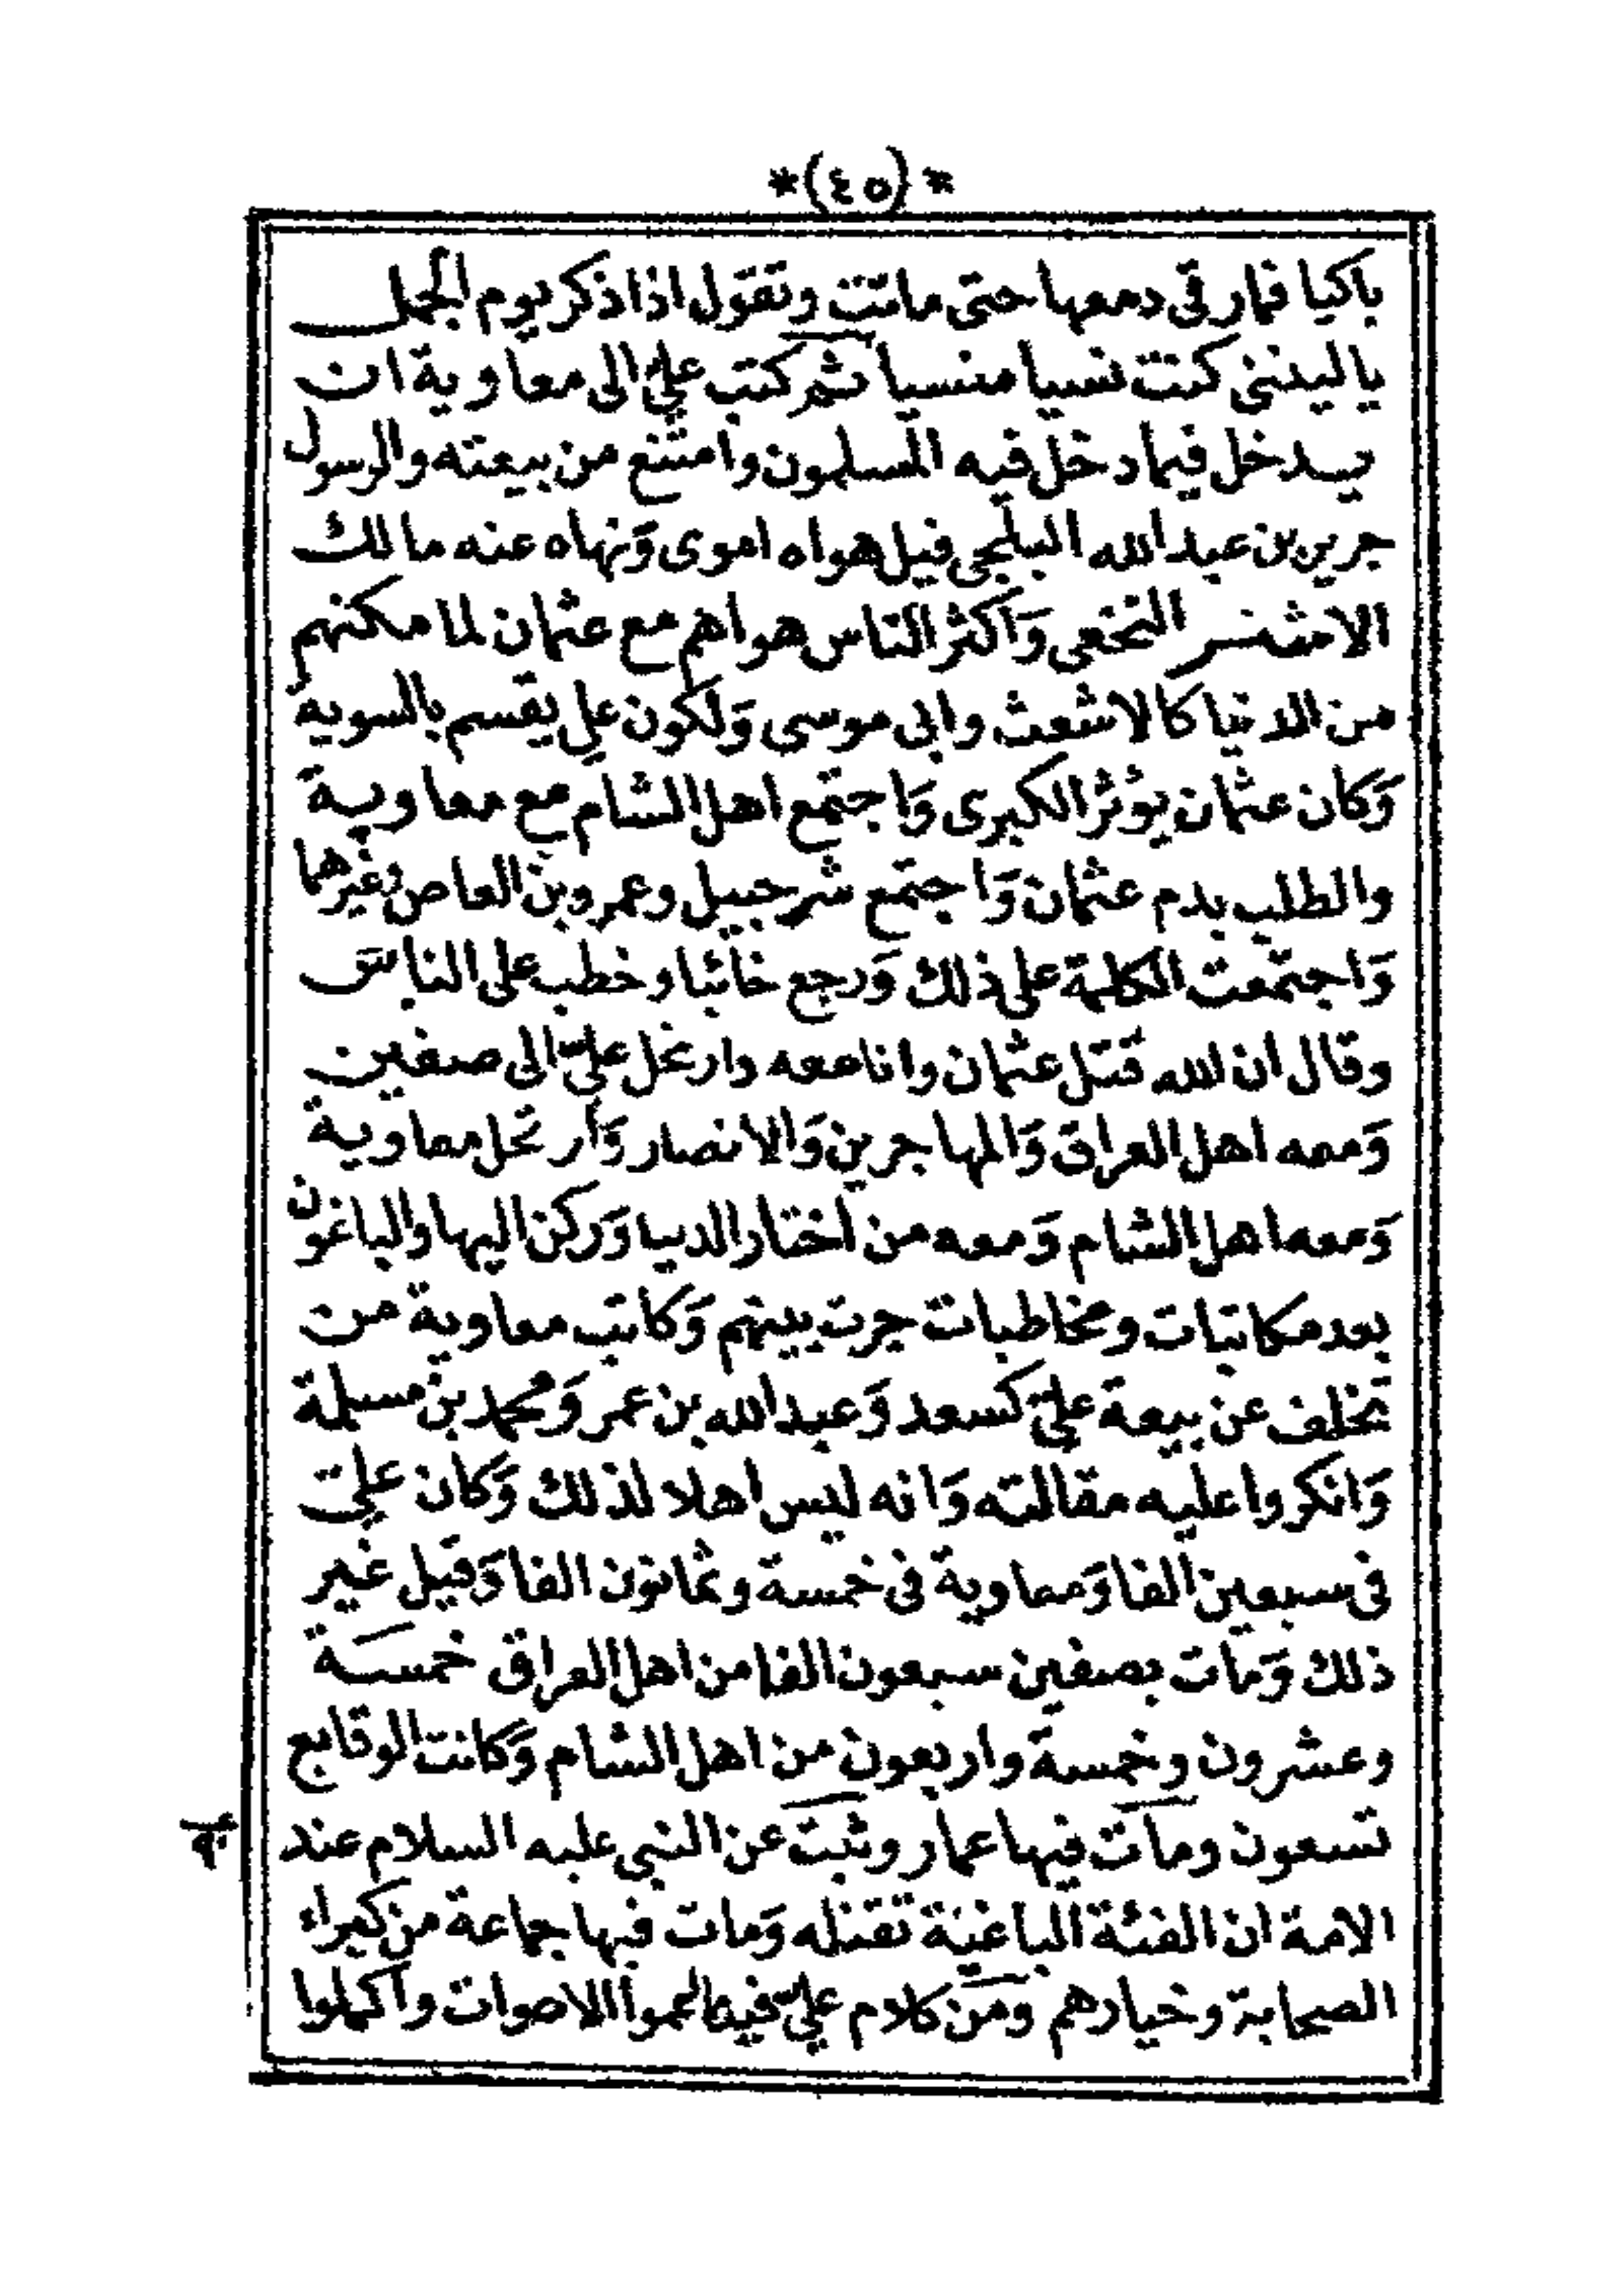 *(٤٥)*
باكيا فمار قى دمعها حتى ماتت وتقول اذا ذكر يوم الجمل
ياليتنى كنت نسيا منسيا ثم كتب علىّ الى معاوية ان
يدخل فيما دخل فيه المسلمون وامتنع من بيعته والرسول
جرير بن عبد الله البجلى قيل هواه اموى وَنهاه عنه مالك
الاشتر النخعى وَاكثر الناس هواهم مع عثمان لما مكنهم
من الدنيا كالاشعث وابى موسى وَلكون على يقسم بالسوية
وَكان عثمان يؤثر الكبرى وَاجتمع اهل الشام مع معاوية
والطلب بدم عثمان وَاجتمع شرحبيل وعمرو بن العاص وغيرهما
وَاجتمعت الكلمة على ذلك وَرجع خائبا وخطب على الناس
وقال ان الله قتل عثمان وانا معه وارتحل علىّ الى صفين
وَمعه اهل العراق وَالمهاجرين وَالانصار وَارتحل معاوية
وَمعه اهل الشام وَمعه من اختار الدنيا وَركن اليها والباغون
بعد مكاتبات ومخاطبات جرت بينهم وَكاتب معاوية من
تخلف عن بيعة علىّ كسعد وَعبد الله بن عمر وَمحمد بن مسلمة
وَانكروا عليه مقالته وَانه ليس اهلا لذلك وَكان علىّ
فى سبعين الفا وَمعاوية فى خمسة وثمانون الفا وَقيل غير
ذلك وَمات بصفين سبعون الفا من اهل العراق خمسة
وعشرون وخمسة واربعون من اهل الشام وَكانت الوقايع
تسعون ومات فيها عمار وثبت عن النبى عليه السلام عند
الامة ان الفئة الباغية تقتله وَمات فيها جماعة من كبراء
الصحابة وخيارهم ومن كلام علىّ فيها عموا الاصوات واكملوا